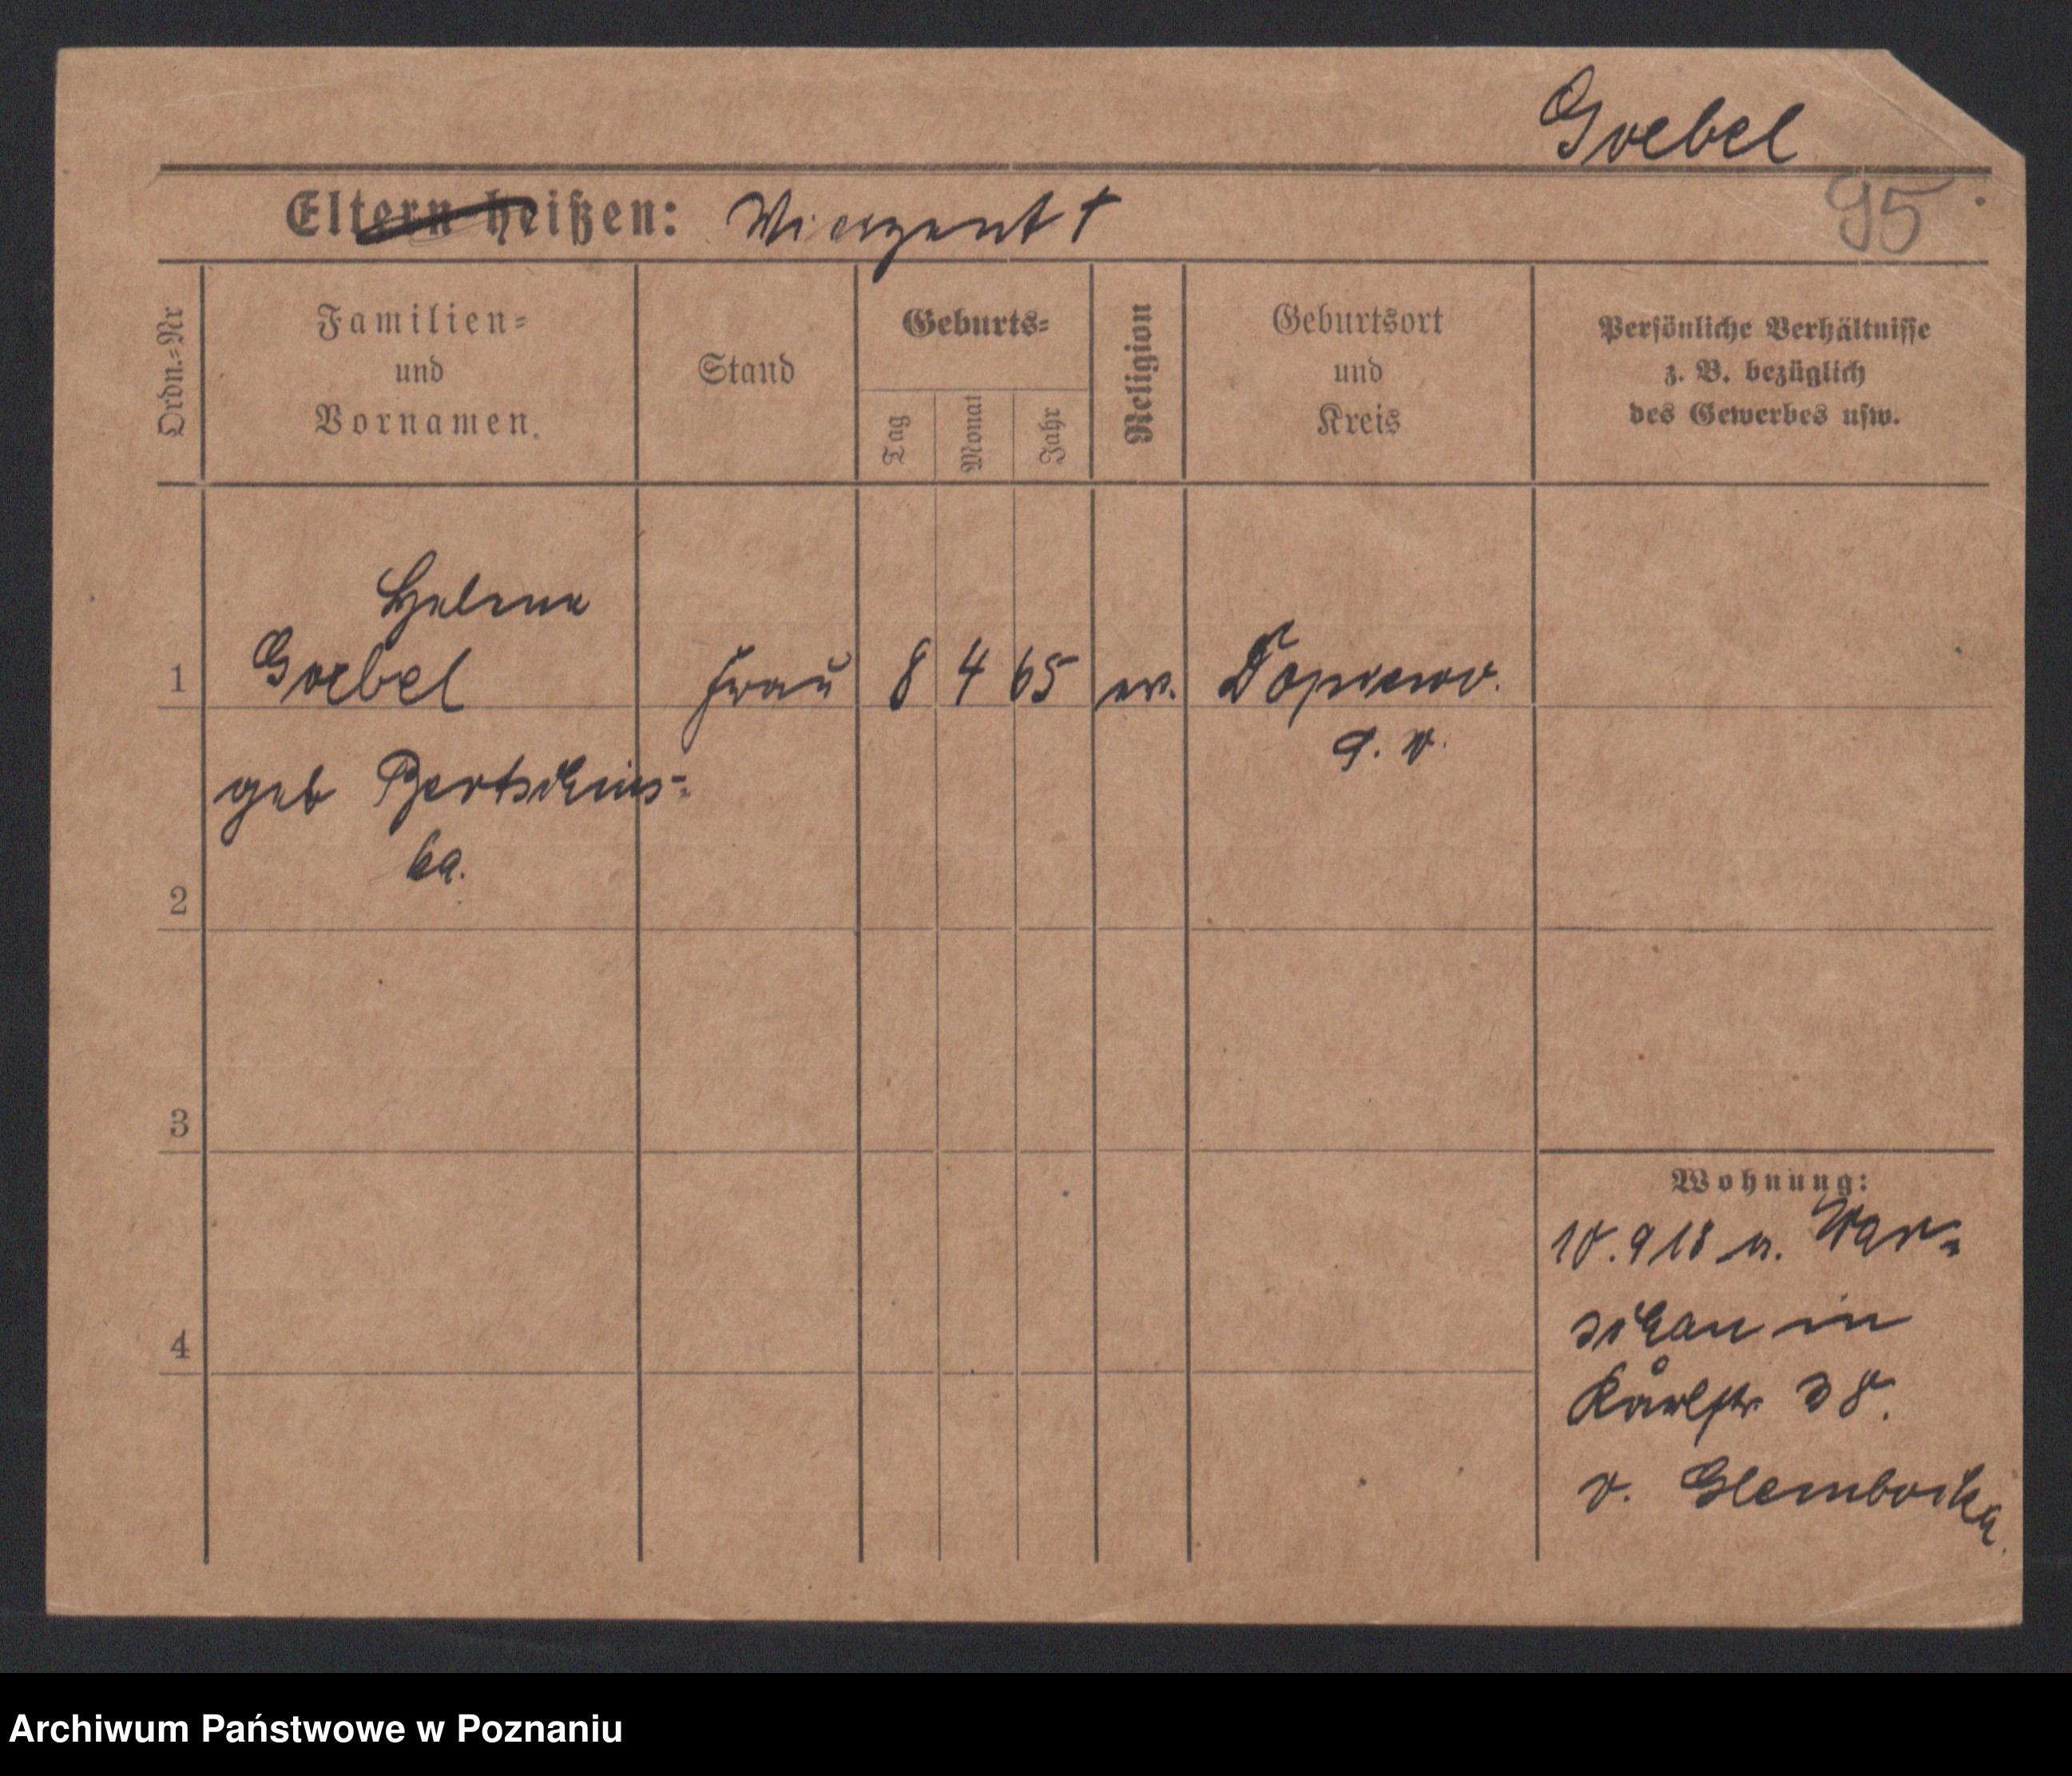 Goebel
95
Eltern heißen: Vinzent †
Ordn.=Nr
Familien=
und
Vornamen.
Stand
Geburts=
Tag
Monat
Jahr
Religion
Geburtsort
und
Kreis
Persönliche Verhältnisse
z. B. bezüglich
des Gewerbes usw.
Helene
1 Goebel Frau 8 4 65 ev.
geb
ka.
2
3
4
Wohnung:
10.918 a. War=
schau in
Karlstr 38.
v. Glembocka
Archiwum Państwowe w Poznaniu